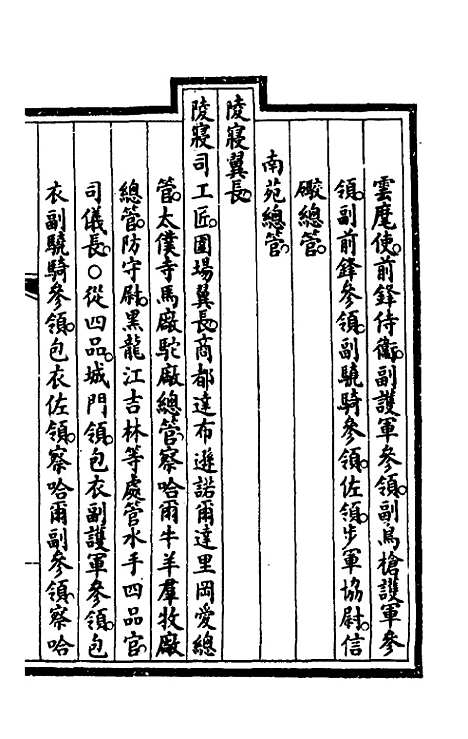 雲麾使。前鋒侍衞。副護軍參領。副鳥槍護軍參
領。副前鋒參領。副驍騎參領。佐領。步軍協尉。信
礮總管。
南苑總管。
陵寢翼長。
陵寢司工匠。圍場翼長。商都達布遜諾爾達里岡愛總
管。太僕寺馬廠駝廠總管。察哈爾牛羊羣牧廠
總管。防守尉。黑龍江吉林等處管水手四品官。
司儀長。○從四品。城門領。包衣副護軍參領。包
衣副驍騎參領。包衣佐領。察哈爾副參領。察哈